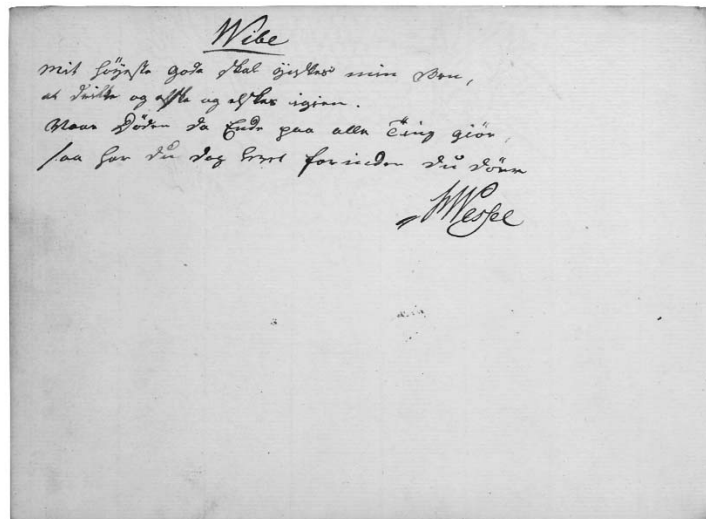 Wibe
Mit höyeste gode skal ynskes min Ven,
at drikke og elske og elskes igien.
Naar Döden da Ende paa alle Ting giör,
saa har du dog levet forinden du döer
JHWessel